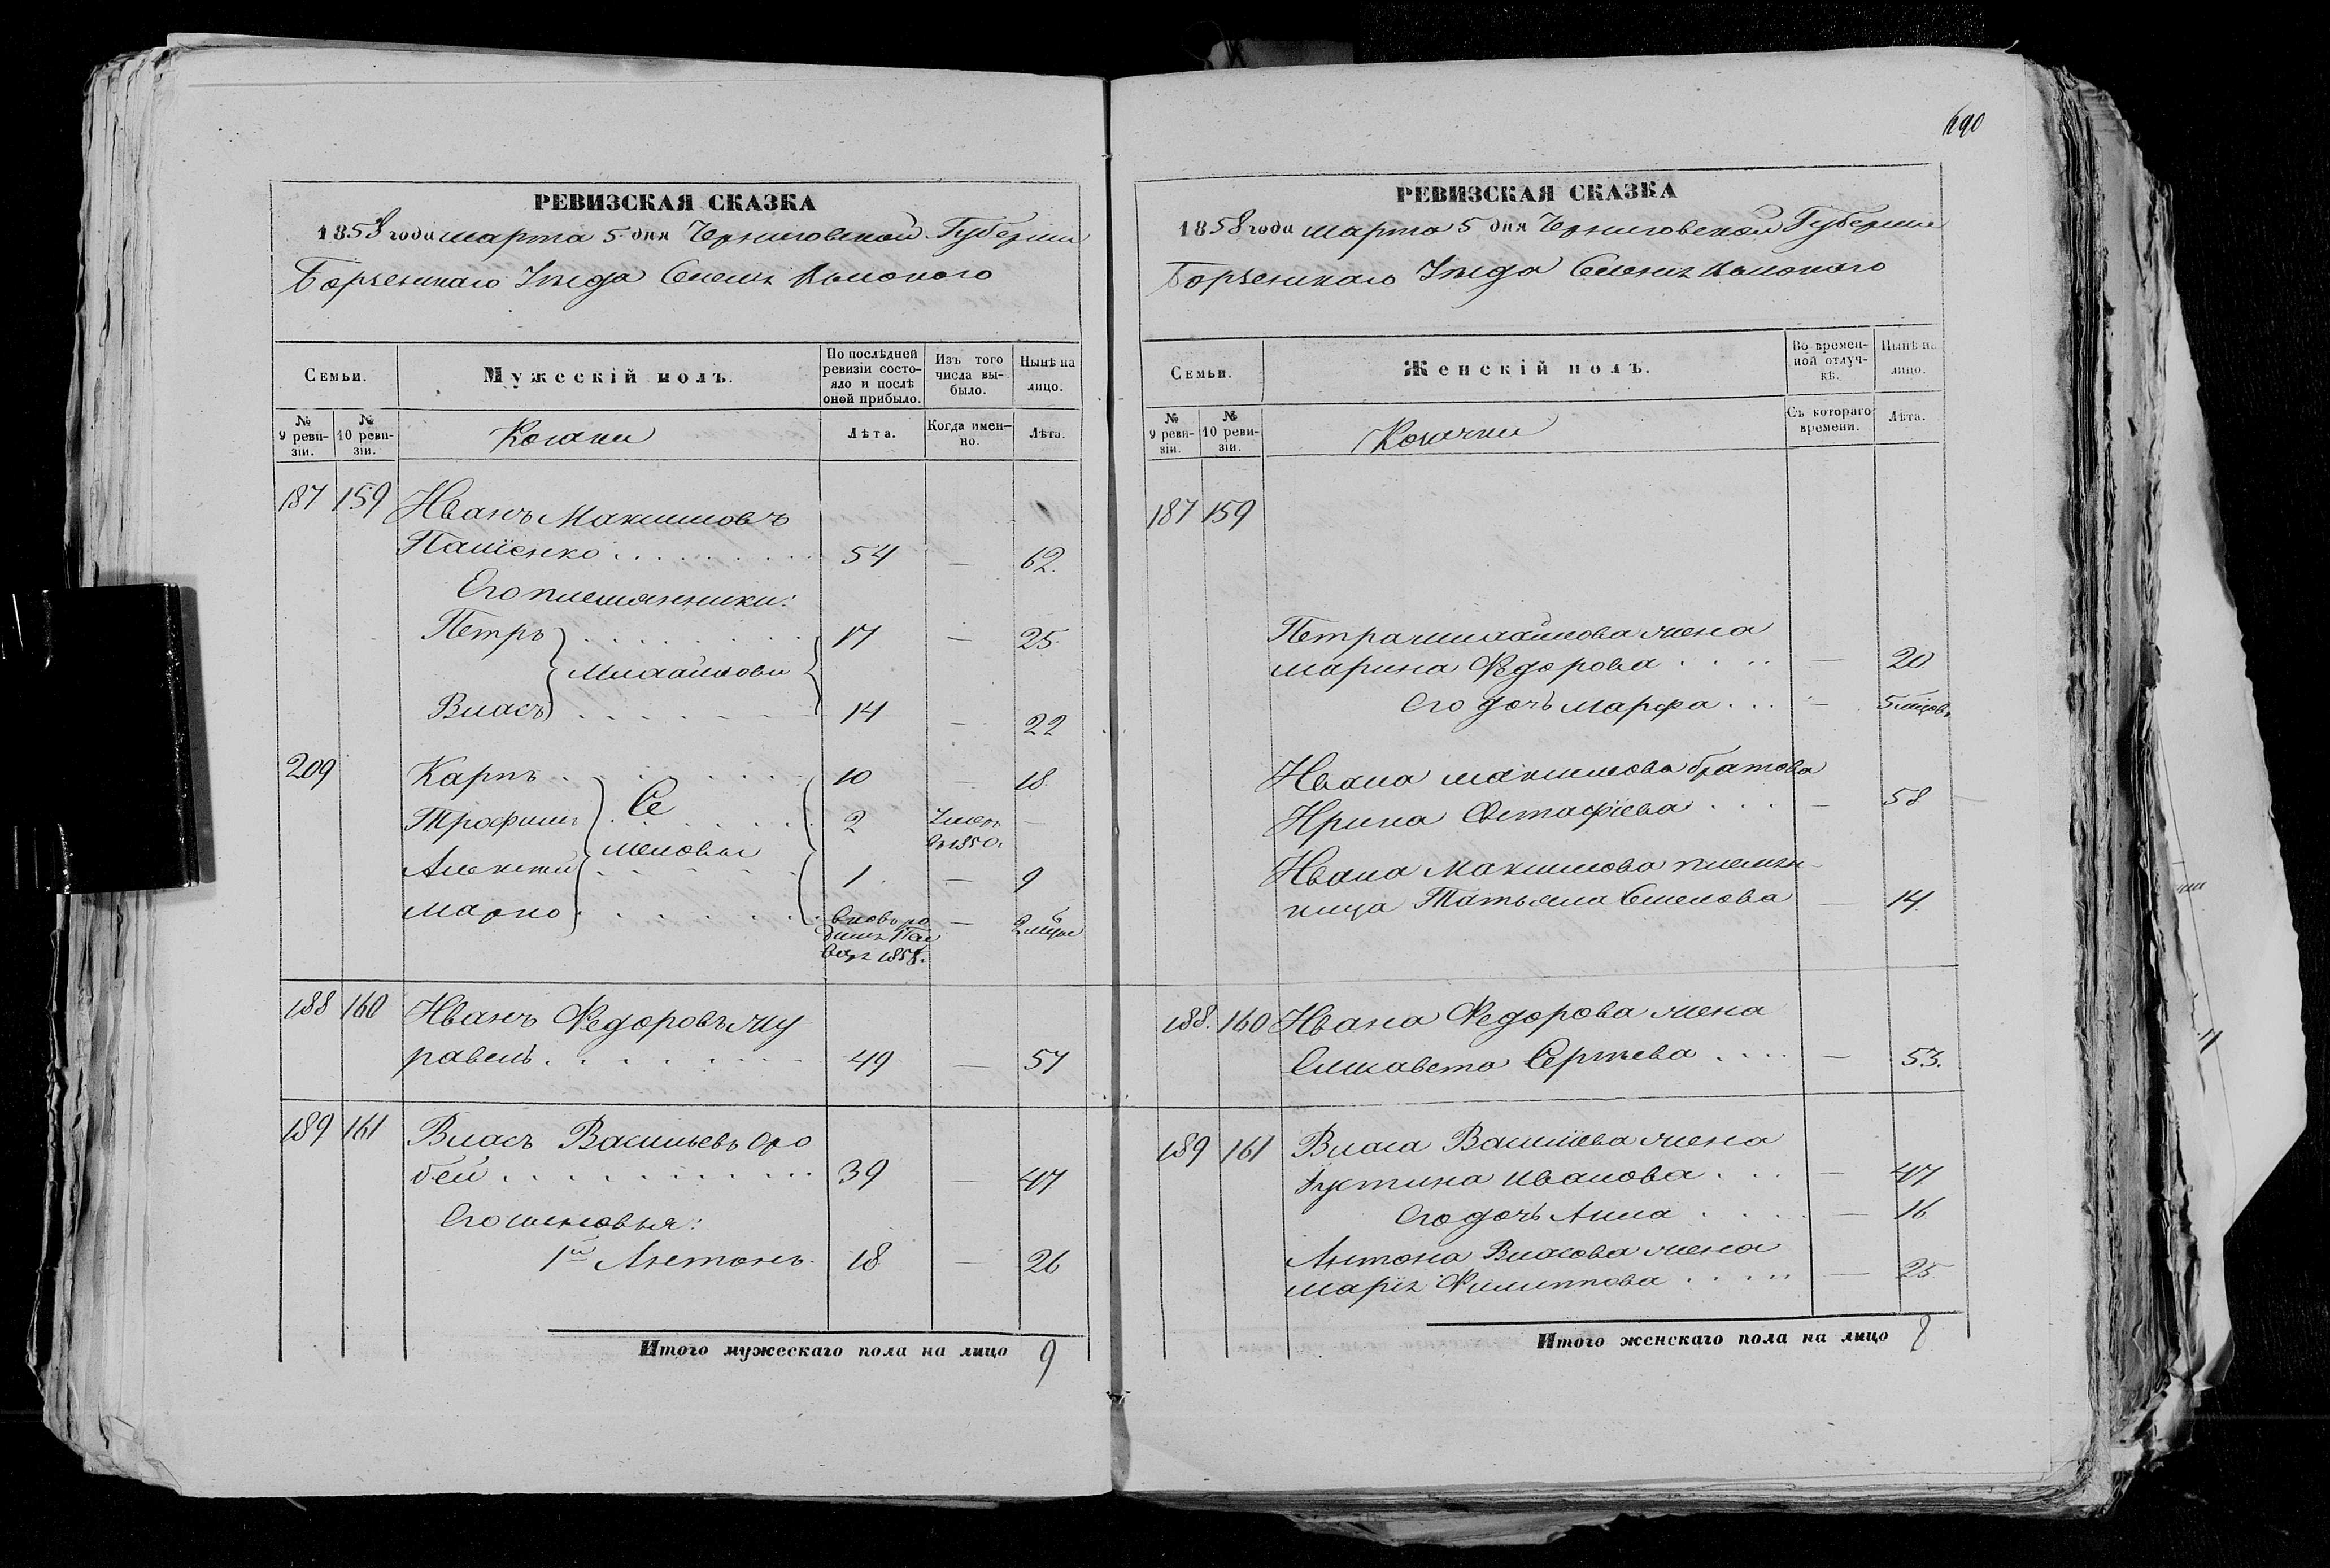 690
РЕВИЗСКАЯ СКАЗКА
1858 года марта 5 дня Черниговской Губернии
Борзенскаго Уезда
Семьи.
Мужескій полъ.
По послѣдней ревизіи состояло и послѣ оной прибыло.
Изъ того числа выбыло.
Нынѣ на лицо.
№ 9 ревизіи.
№ 10 ревизіи.
Козаки
Лѣта.
Когда именно.
Лѣта.
187 159 Иванъ Максимовъ
Пашенко . . . 54 — 62.
Его племянники:
Петръ . . . 17 — 25
Михайловы
Власъ . . . 14 — 22
209 Карпъ . . . 10 — 18
Се
Трофимъ . . . 2 Умеръ —
въ 1850.
меновы
Алексей . . . 1 — 9
Марко . . . вновь ро — 2 мѣс
дился
1858.
188 160 Иванъ Федоровъ Жу
равель . . . 49 — 57
189 161 Власъ Васильевъ Оро
бей . . . 39 — 47
Его сыновья:
1й Антонъ. 18 — 26
Итого мужескаго пола на лицо 9
РЕВИЗСКАЯ СКАЗКА
1858 года марта 5 дня Черниговской Губернии
Борзенскаго Уезда
Семьи.
Женскій полъ.
Во временной отлучкѣ.
Нынѣ на лицо.
№ 9 ревизіи.
№ 10 ревизіи.
Козачки
Съ котораго времени.
Лѣта.
187 159
Петра Михайлова жена
Марина Федорова . . . — 20
Его дочь Марфа . . . — 5 мѣсяцовъ
Ивана Максимова братова
Ирина Остафіева . . . — 58
Ивана Максимова племян
ница Татьяна Семенова — 14
188. 160 Ивана Федорова жена
Елисавета Сергѣева . . . — 53.
189 161 Власа Василіева жена
Густина Иванова . . . — 47
Его дочь Анна . . . — 16
Антона Власова жена
Марія Филиппова . . . — 25
Итого женскаго пола на лицо 8